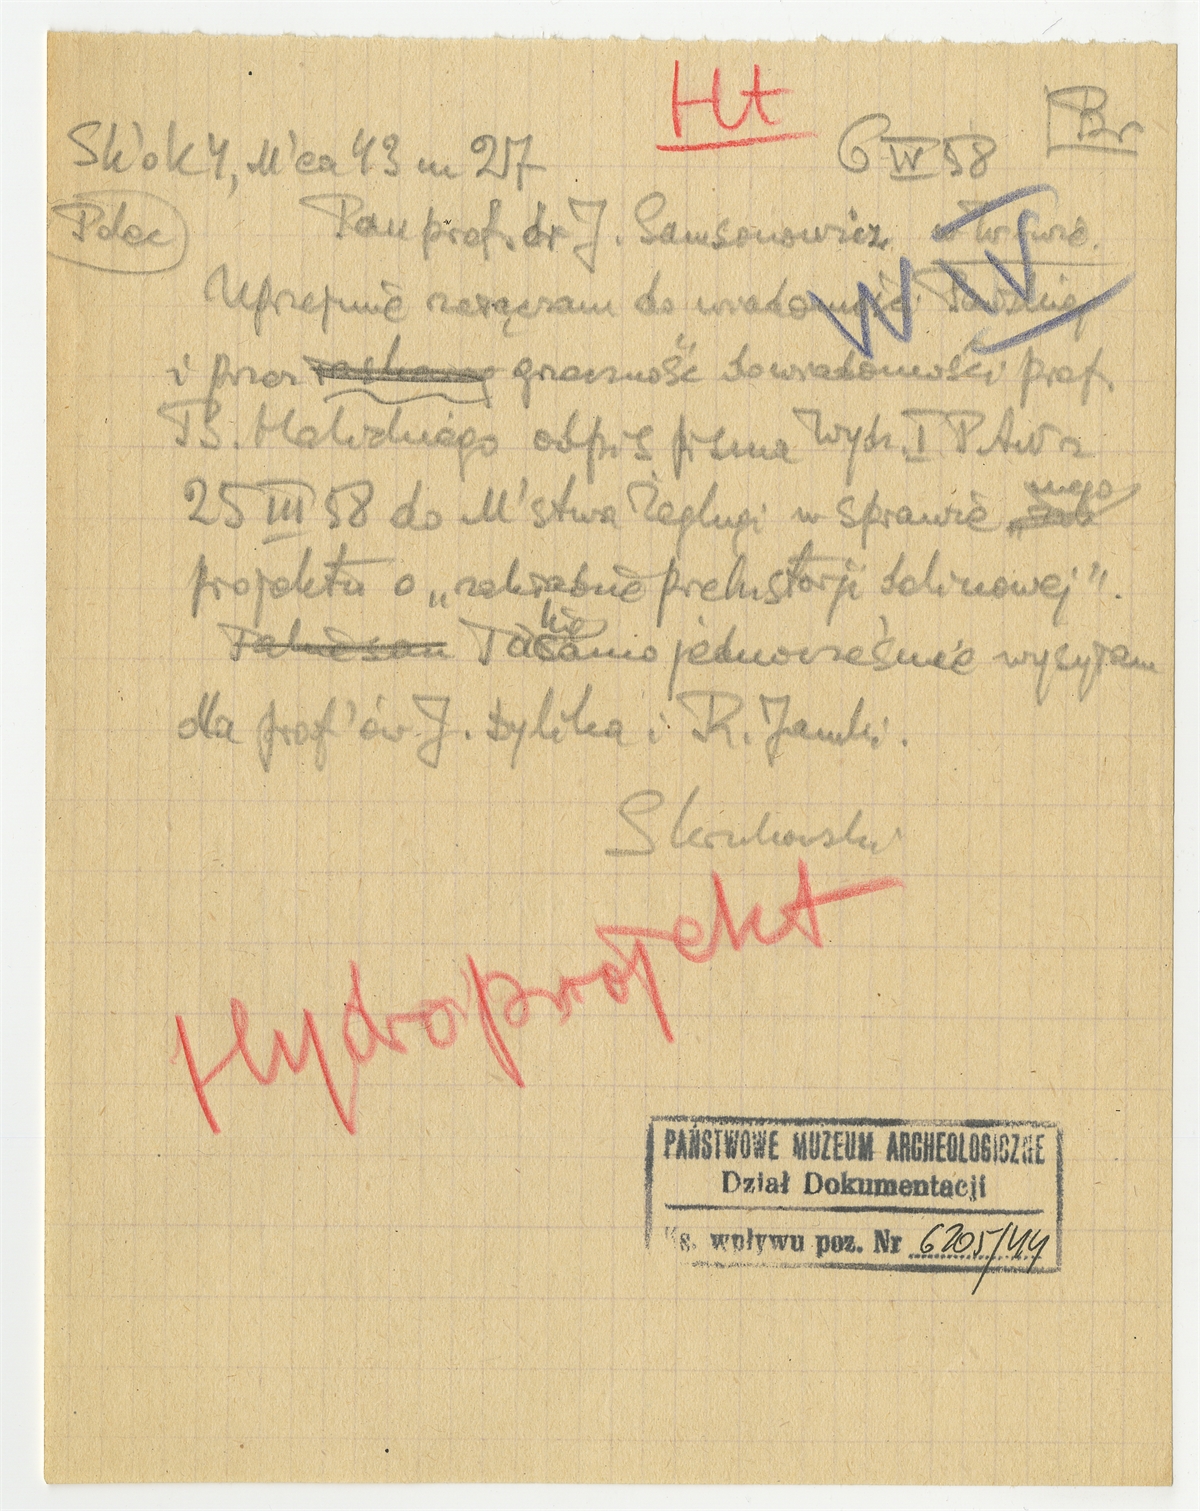 Ht
Br
Sk'ok 4, M'ca 43 m 27
6 IV 58
Polec
Pan prof. dr J. Samsonowicz w W'wie.
W IV
Uprzejmie załączam do wiadomości Pańskiej
i przez łaskawą grzeczność do wiadomości prof.
B. Halickiego odpis pisma Wydz. I PAN z
25 III 58 do M'stwa Żeglugi w sprawie mego
projektu o „zakładnie prehistorji dolinowej”.
Takie same jednocześnie wysyłam
dla prof'ów J. Dylika i R. Jamki.
Skrukowski
Hydroprojekt
PAŃSTWOWE MUZEUM ARCHEOLOGICZNE
Dział Dokumentacji
Ks. wpływu poz. Nr 6205/44